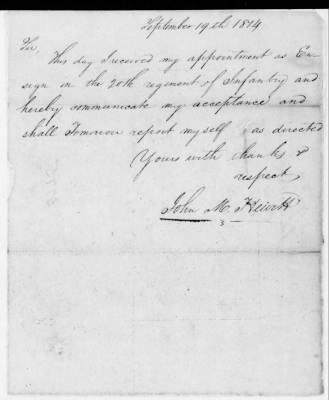 September 19th 1814
Sir,
This day I received my appointment as En-
sign in the 20th regiment of Infantry and
hereby communicate my acceptance and
shall Tomorrow report myself as directed
Yours with thanks &
respect
John M.
3